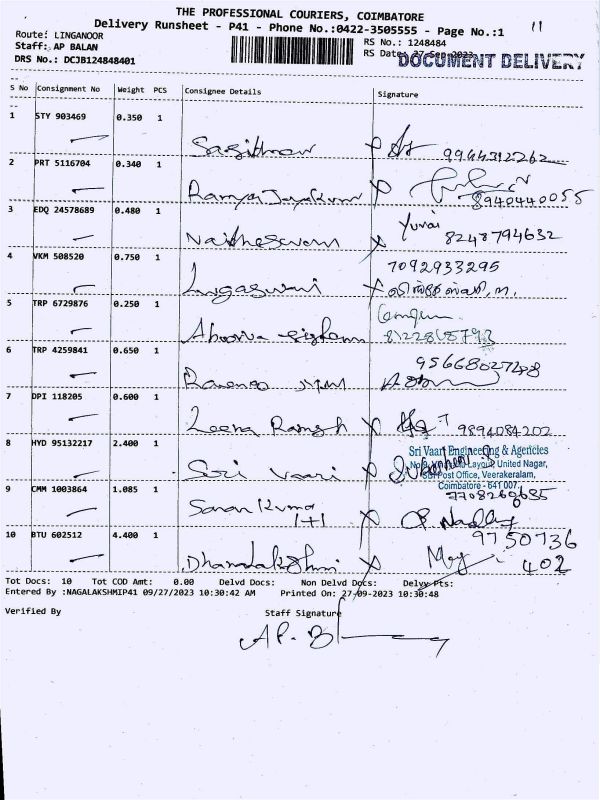 THE PROFESSIONAL COURIERS, COIMBATORE
Delivery Runsheet - P41 - Phone No.:0422-3505555 - Page No.:1
11
Route: LINGANOOR
RS No.: 1248484
Staff: AP BALAN
RS Date: 27-Sep-2023
DOCUMENT DELIVERY
DRS No.: DCJB124848401
S No Consignment No Weight PCS Consignee Details Signature
1 STY 903469 0.350 1
9944312262
2 PRT 5116704 0.340 1
Ramya Jayakumar
8940440055
3 EDQ 24578689 0.480 1
Yuvai
8248794632
4 VKM 508520 0.750 1
7092933295
Lingaswami
5 TRP 6729876 0.250 1
6 TRP 4259841 0.650 1
7 DPI 118205 0.600 1
Leena Ramesh
9894084202
8 HYD 95132217 2.400 1
Sri Vaari Engineering & Agencies
Layout, United Nagar,
Sri Vaari
Post Office, Veerakeralam,
Coimbatore - 641 007.
9 CMM 1003864 1.085 1
7708260685
Saran Kuma
1+1
10 BTU 602512 4.400 1
9750736
402
Dhanalakshmi
Tot Docs: 10 Tot COD Amt: 0.00 Delvd Docs: Non Delvd Docs: Delvy Pts:
Entered By :NAGALAKSHMIP41 09/27/2023 10:30:42 AM Printed On: 27-09-2023 10:30:48
Verified By Staff Signature
AP. B